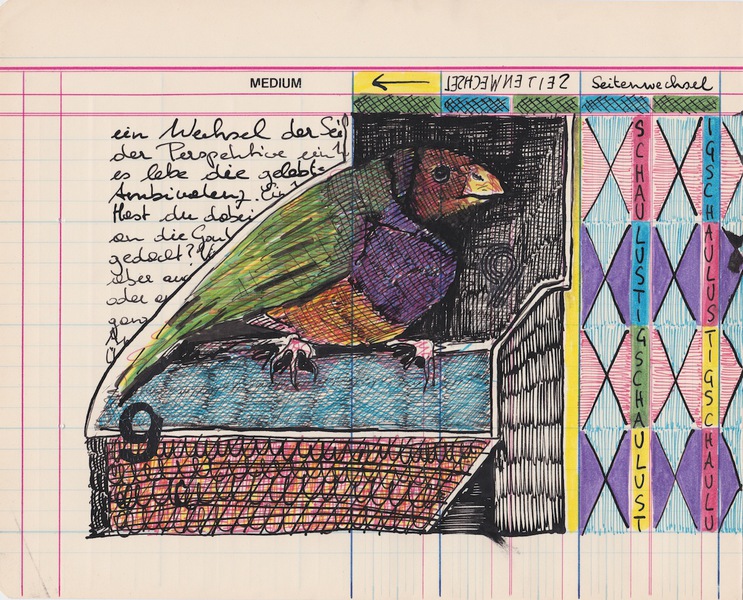 MEDIUM
SEITENWECHSEL
Seitenwechsel
ein Wechsel der Sei
der Perspektive
es lebe die gelebte
Ambivalenz.
Hast du dabei
an die
gedacht?
aber
oder
9
SCHAULUSTIGSCHAULUST
IGSCHAULUSTIGSCHAULU